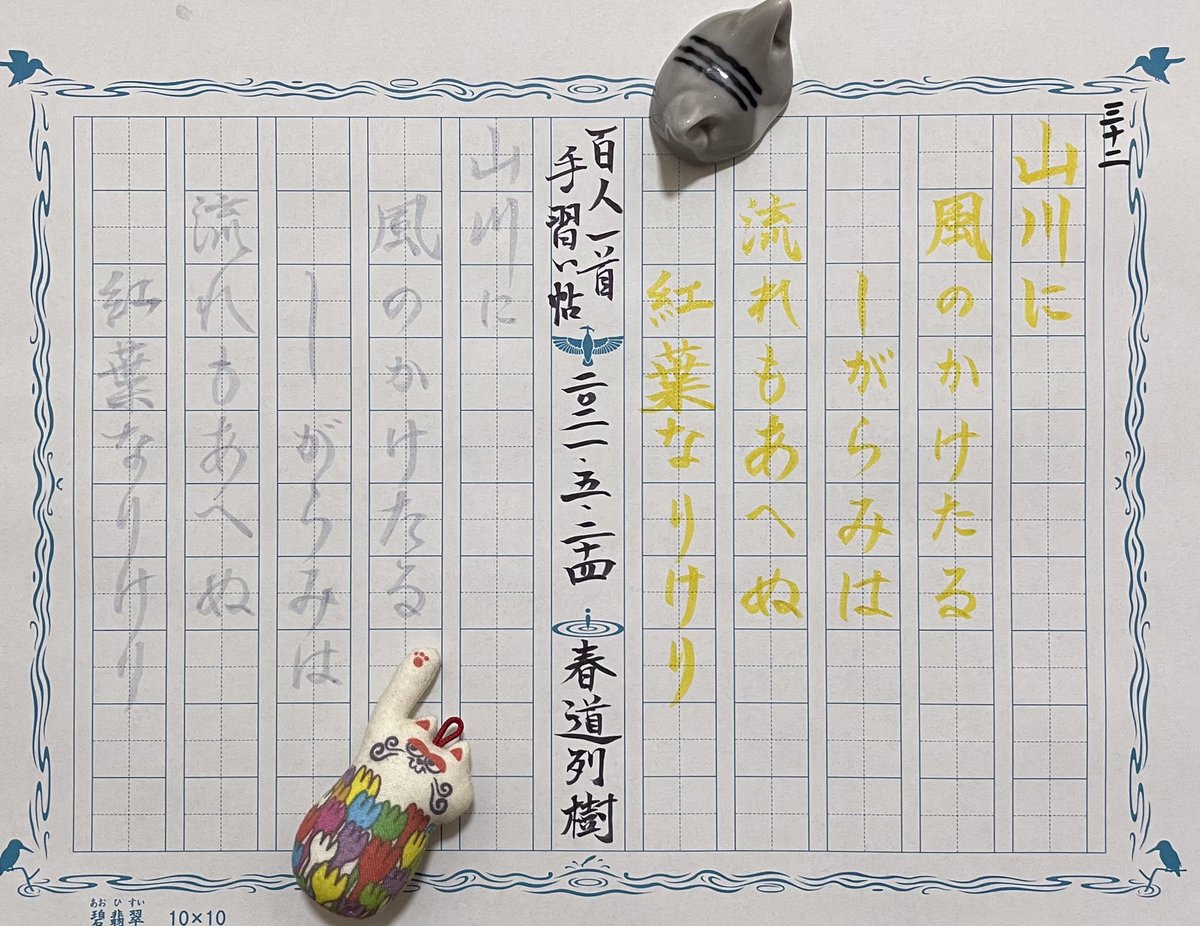 三十二
山川に
風のかけたる
しがらみは
流れもあへぬ
紅葉なりけり
百人一首
手習い帖
二〇二一.五.二十四
春道列樹
山川に
風のかけたる
しがらみは
流れもあへぬ
紅葉なりけり
あお ひ すい
碧翡翠 10×10